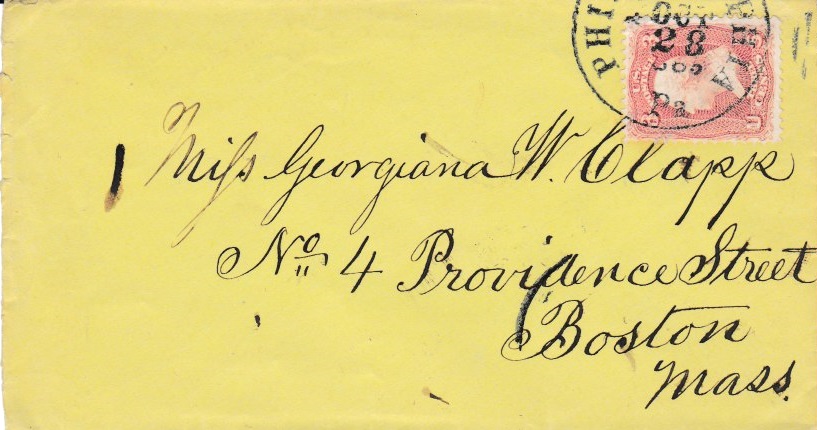 OCT
28
Pa
Miss Georgiana W. Clapp
No. 4 Providence Street
Boston
Mass.